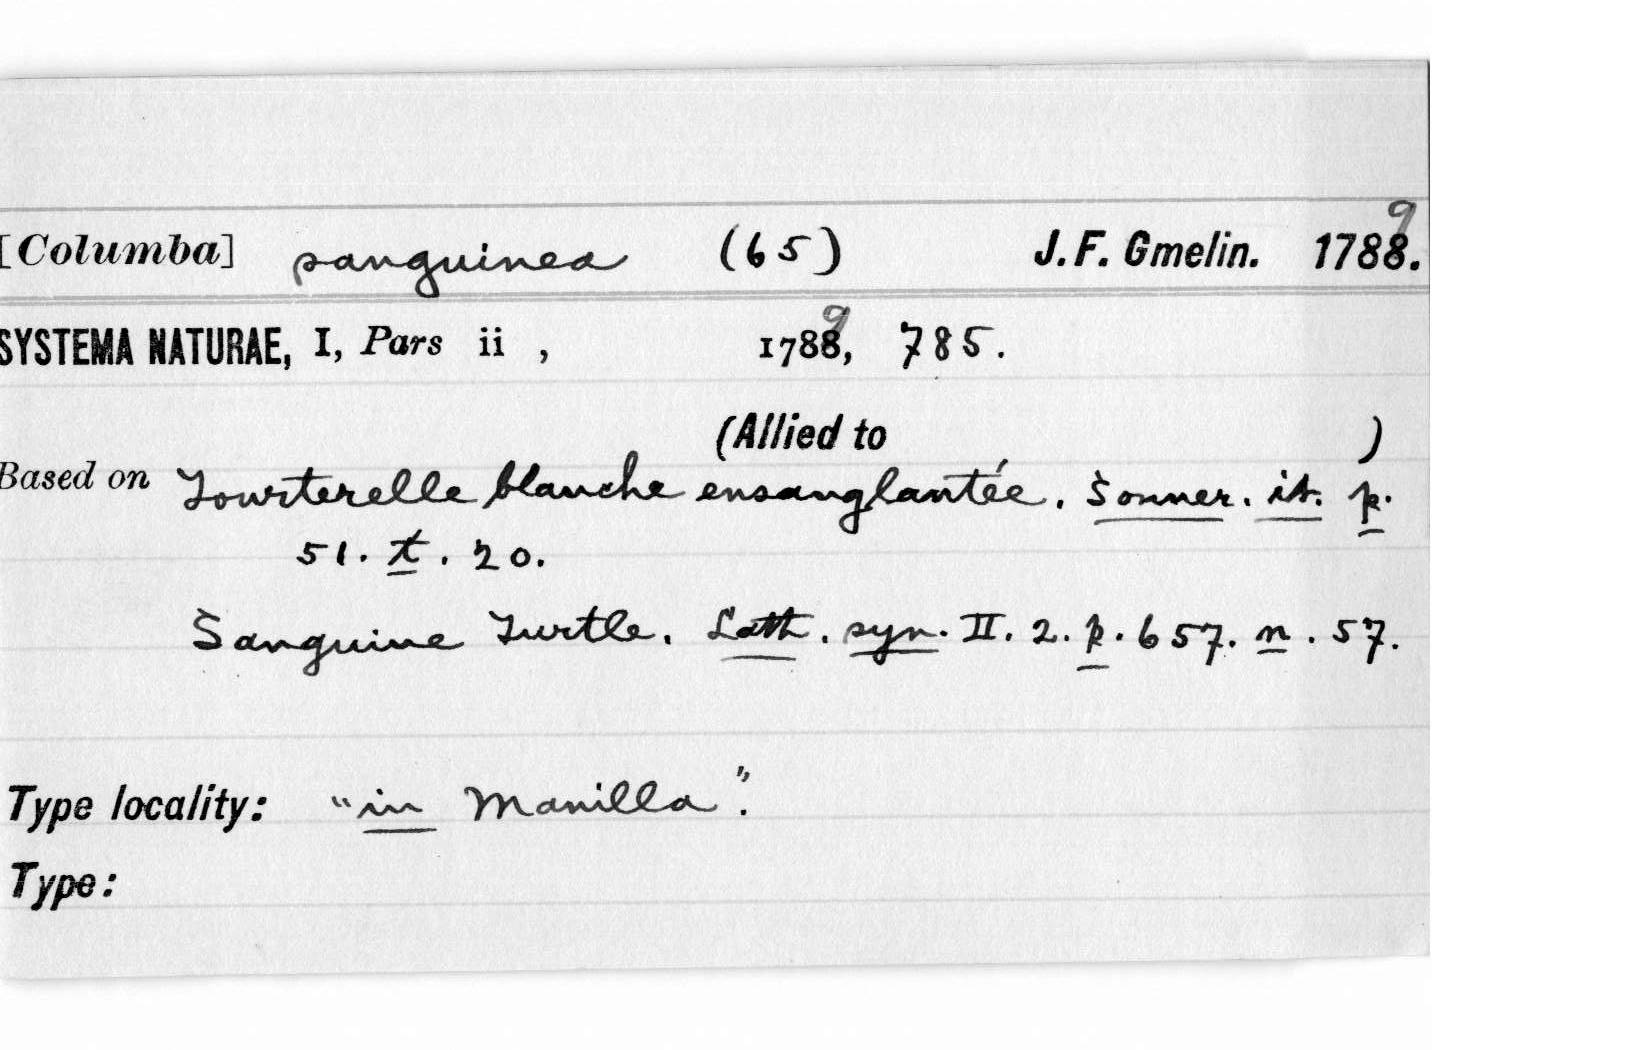 [Columba] sanguinea (65) J. F. Gmelin. 1788. 9
SYSTEMA NATURAE, I, Pars ii , 1788, 9 785.
(Allied to )
Based on Tourterelle blanche ensanglantée. Sonner. it. p.
51. t. 20.
Sanguine Turtle. Lath. syn. II. 2. p. 657. n. 57.
Type locality: "in Manilla".
Type: